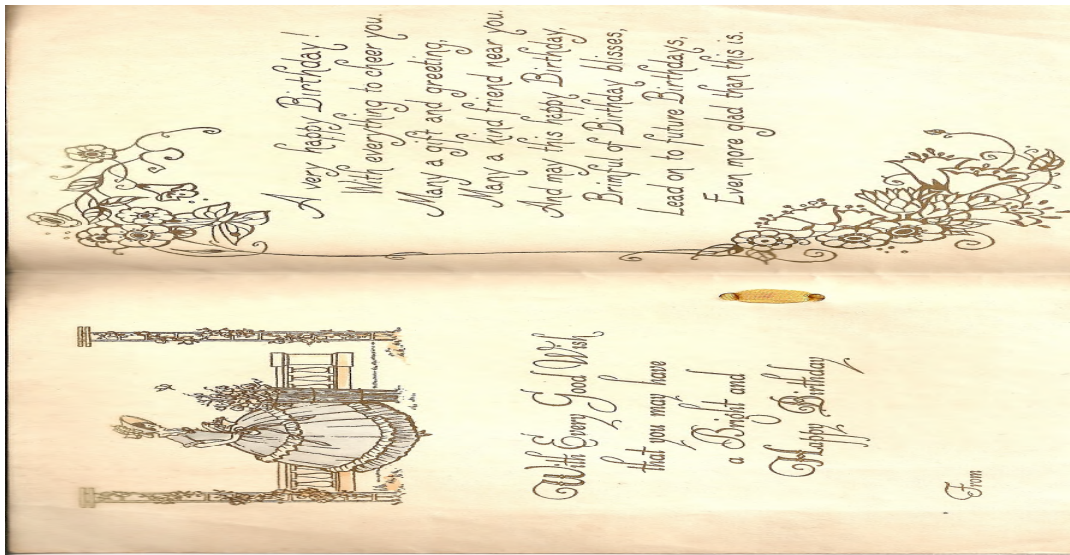 With Every Good Wish
that you may have
a Bright and
Happy Birthday
From
A very happy Birthday!
With everything to cheer you.
Many a gift and greeting,
Many a kind friend near you.
And may this happy Birthday
Brimful of Birthday blisses,
Lead on to future Birthdays,
Even more glad than this is.